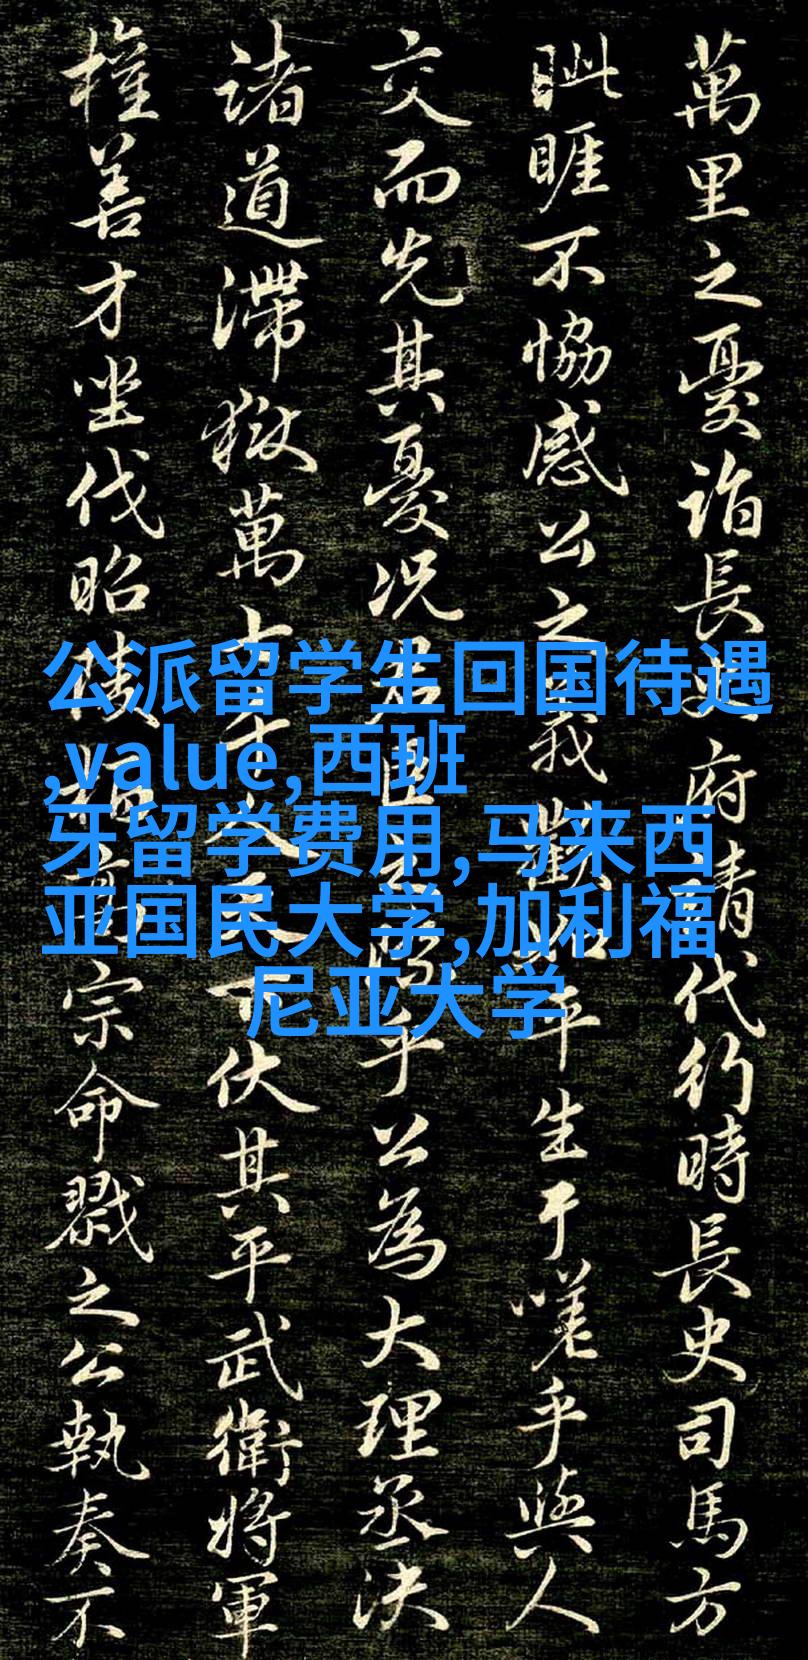 萬里之憂詣長史府請代行時長史司馬方
眦睚不協感公之義歡如平生于嗟乎與人
交而先其憂況君臣之際乎公為大理丞決
諸道滯獄萬七千人天下伏其平武衛將軍
權善才坐伐昭陵柏高宗命戮之公執奏不
公派留学生回国待遇
,value,西班
牙留学费用,马来西
亚国民大学,加利福
尼亚大学